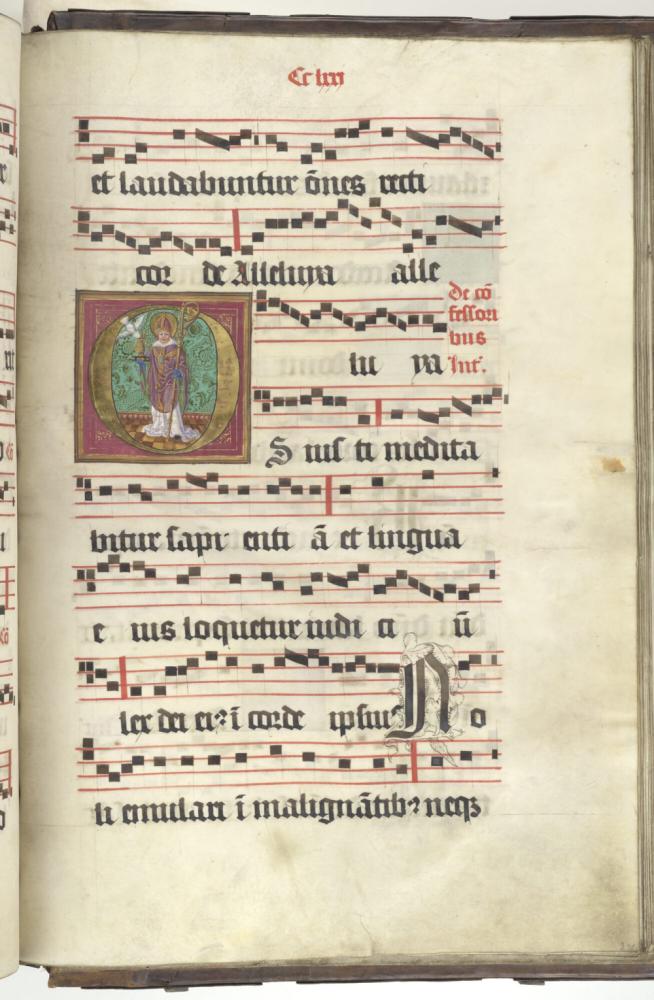 CC lxxj
et laudabuntur ōnes recti
cor de Alleluya alle
lu ya
De cō
fessori
bus
Int̄.
OS ius ti medita
bitur sapi enti ā et lingua
e ius loquetur iudi ci ū
lex dei ei⁹ ī corde ipsius No
li emulari ī malignātib⁹ neqꝫ